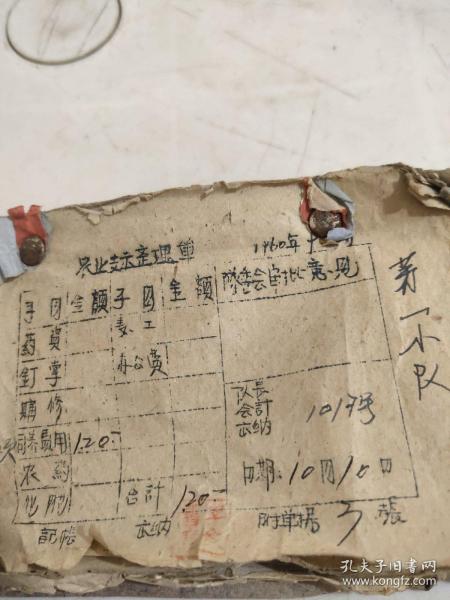 农业支示整理单 1960年十二月
子目 金额 子目 金额 队委会审批意见
药费 麦工
钉掌 办公费
购修
饲养员用 1.20-
农药
化肥 合计 1.20-
队长
会计 1017号
出纳
日期: 10月10日
记帐 出纳 附单据 3 张
第一小队
孔夫子旧书网
www.kongfz.com